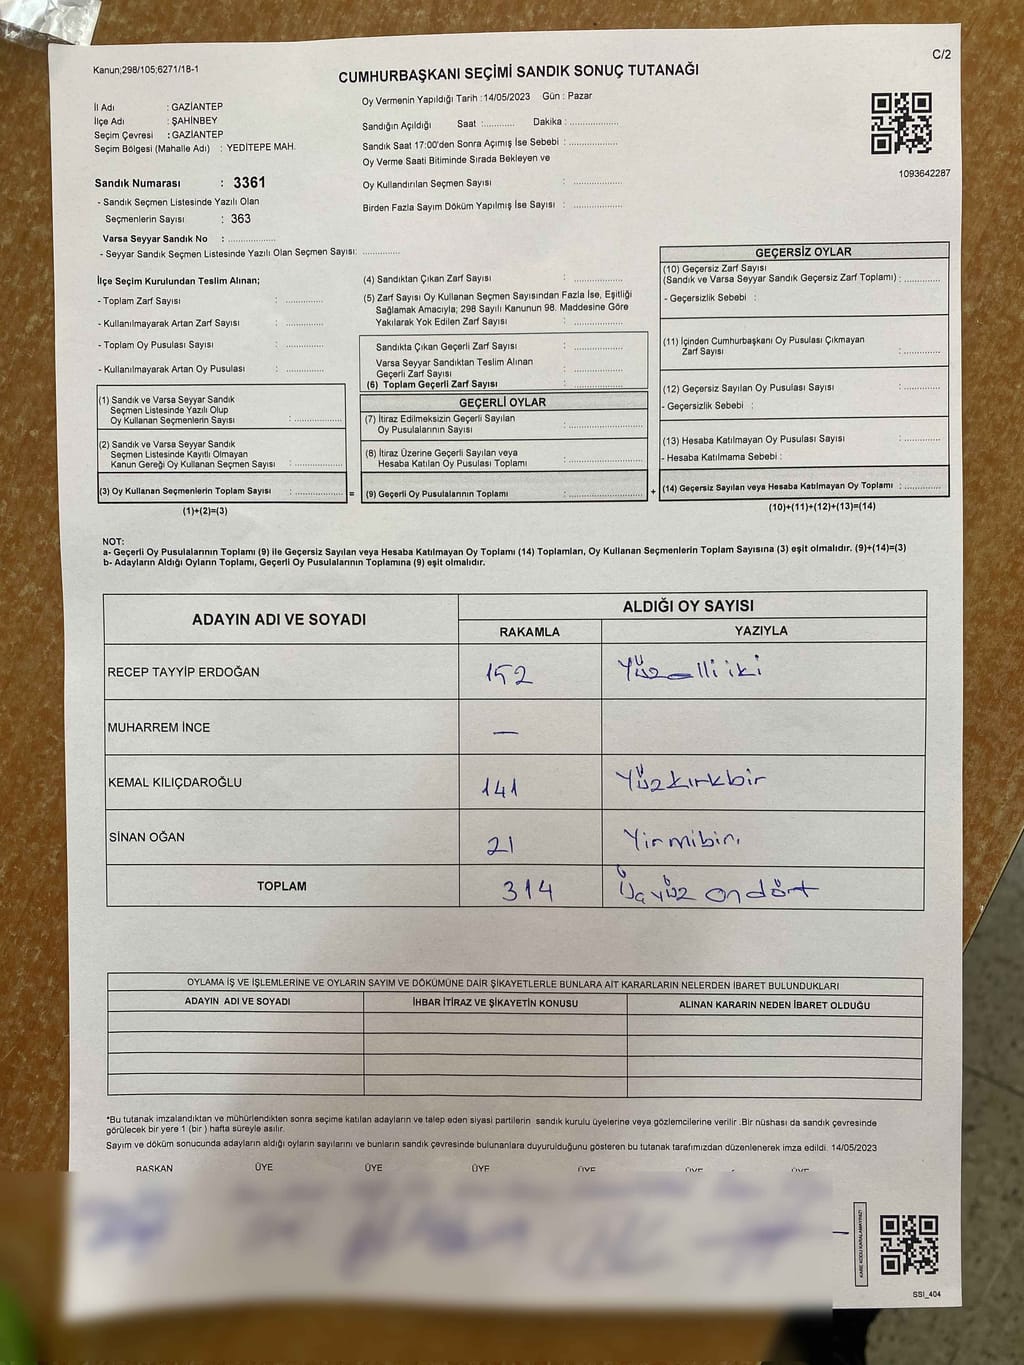 Kanun;298/105;6271/18-1
C/2
CUMHURBAŞKANI SEÇİMİ SANDIK SONUÇ TUTANAĞI
İl Adı : GAZİANTEP
İlçe Adı : ŞAHİNBEY
Seçim Çevresi : GAZİANTEP
Seçim Bölgesi (Mahalle Adı) : YEDİTEPE MAH.
Sandık Numarası : 3361
- Sandık Seçmen Listesinde Yazılı Olan
Seçmenlerin Sayısı : 363
Varsa Seyyar Sandık No : ................
- Seyyar Sandık Seçmen Listesinde Yazılı Olan Seçmen Sayısı: .............
Oy Vermenin Yapıldığı Tarih :14/05/2023 Gün : Pazar
Sandığın Açıldığı Saat :........... Dakika : .................
Sandık Saat 17:00'den Sonra Açımış İse Sebebi : .................
Oy Verme Saati Bitiminde Sırada Bekleyen ve
Oy Kullandırılan Seçmen Sayısı : .................
Birden Fazla Sayım Döküm Yapılmış İse Sayısı : .................
1093642287
İlçe Seçim Kurulundan Teslim Alınan;
- Toplam Zarf Sayısı : .............
- Kullanılmayarak Artan Zarf Sayısı : .............
- Toplam Oy Pusulası Sayısı : .............
- Kullanılmayarak Artan Oy Pusulası : .............
(1) Sandık ve Varsa Seyyar Sandık
Seçmen Listesinde Yazılı Olup
Oy Kullanan Seçmenlerin Sayısı : .................
(2) Sandık ve Varsa Seyyar Sandık
Seçmen Listesinde Kayıtlı Olmayan
Kanun Gereği Oy Kullanan Seçmen Sayısı : .................
(3) Oy Kullanan Seçmenlerin Toplam Sayısı : ................. =
(1)+(2)=(3)
(4) Sandıktan Çıkan Zarf Sayısı : .................
(5) Zarf Sayısı Oy Kullanan Seçmen Sayısından Fazla İse, Eşitliği
Sağlamak Amacıyla; 298 Sayılı Kanunun 98. Maddesine Göre
Yakılarak Yok Edilen Zarf Sayısı : .................
Sandıkta Çıkan Geçerli Zarf Sayısı : .................
Varsa Seyyar Sandıktan Teslim Alınan
Geçerli Zarf Sayısı : .................
(6) Toplam Geçerli Zarf Sayısı : .................
GEÇERLİ OYLAR
(7) İtiraz Edilmeksizin Geçerli Sayılan
Oy Pusulalarının Sayısı : .................
(8) İtiraz Üzerine Geçerli Sayılan veya
Hesaba Katılan Oy Pusulası Toplamı : .................
(9) Geçerli Oy Pusulalarının Toplamı : ................. +
GEÇERSİZ OYLAR
(10) Geçersiz Zarf Sayısı
(Sandık ve Varsa Seyyar Sandık Geçersiz Zarf Toplamı) : .............
- Geçersizlik Sebebi :
(11) İçinden Cumhurbaşkanı Oy Pusulası Çıkmayan
Zarf Sayısı : .............
(12) Geçersiz Sayılan Oy Pusulası Sayısı : .............
- Geçersizlik Sebebi :
(13) Hesaba Katılmayan Oy Pusulası Sayısı : .............
- Hesaba Katılmama Sebebi :
(14) Geçersiz Sayılan veya Hesaba Katılmayan Oy Toplamı : .............
(10)+(11)+(12)+(13)=(14)
NOT:
a- Geçerli Oy Pusulalarının Toplamı (9) ile Geçersiz Sayılan veya Hesaba Katılmayan Oy Toplamı (14) Toplamları, Oy Kullanan Seçmenlerin Toplam Sayısına (3) eşit olmalıdır. (9)+(14)=(3)
b- Adayların Aldığı Oyların Toplamı, Geçerli Oy Pusulalarının Toplamına (9) eşit olmalıdır.
ADAYIN ADI VE SOYADI ALDIĞI OY SAYISI
RAKAMLA YAZIYLA
RECEP TAYYİP ERDOĞAN 152 Yüzelli iki
MUHARREM İNCE —
KEMAL KILIÇDAROĞLU 141 Yüzkırkbir
SİNAN OĞAN 21 Yirmibir.
TOPLAM 314 Üçyüz ondört
OYLAMA İŞ VE İŞLEMLERİNE VE OYLARIN SAYIM VE DÖKÜMÜNE DAİR ŞİKAYETLERLE BUNLARA AİT KARARLARIN NELERDEN İBARET BULUNDUKLARI
ADAYIN ADI VE SOYADI İHBAR İTİRAZ VE ŞİKAYETİN KONUSU ALINAN KARARIN NEDEN İBARET OLDUĞU
*Bu tutanak imzalandıktan ve mühürlendikten sonra seçime katılan adayların ve talep eden siyasi partilerin sandık kurulu üyelerine veya gözlemcilerine verilir .Bir nüshası da sandık çevresinde
görülecek bir yere 1 (bir ) hafta süreyle asılır.
Sayım ve döküm sonucunda adayların aldığı oyların sayılarını ve bunların sandık çevresinde bulunanlara duyurulduğunu gösteren bu tutanak tarafımızdan düzenlenerek imza edildi. 14/05/2023
BAŞKAN ÜYE ÜYE ÜYE ÜYE ÜYE ÜYE
KARE KODU KARALAMAYINIZ!
SSİ_404